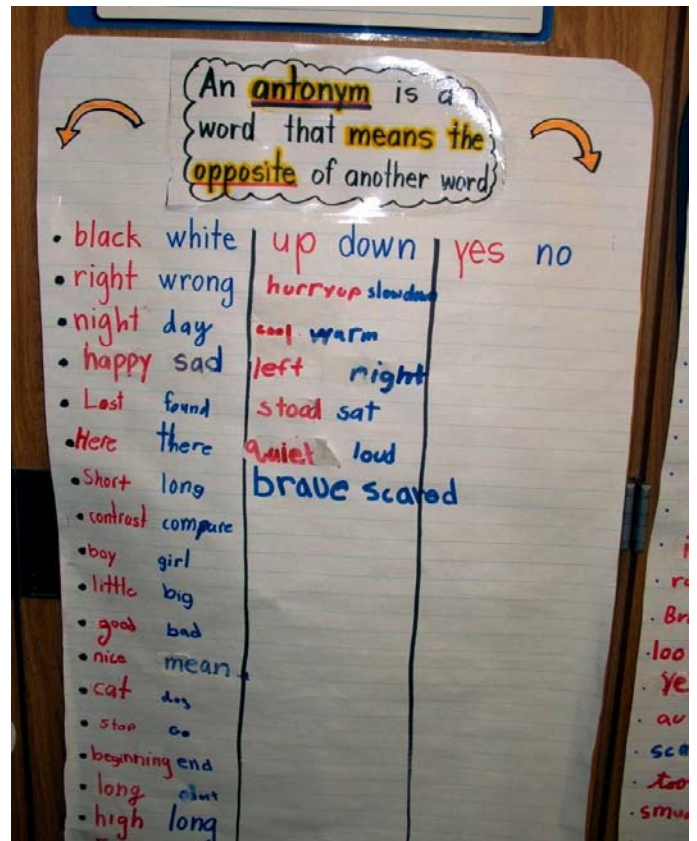 An antonym is a
word that means the
opposite of another word
• black white
• right wrong
• night day
• happy sad
• Lost found
• Here there
• Short long
• contrast compare
• boy girl
• little big
• good bad
• nice mean
• cat dog
• stop Go
• beginning end
• long
• high long
up down
hurryup slowdown
cool warm
left night
stood sat
quiet loud
brave scared
yes no